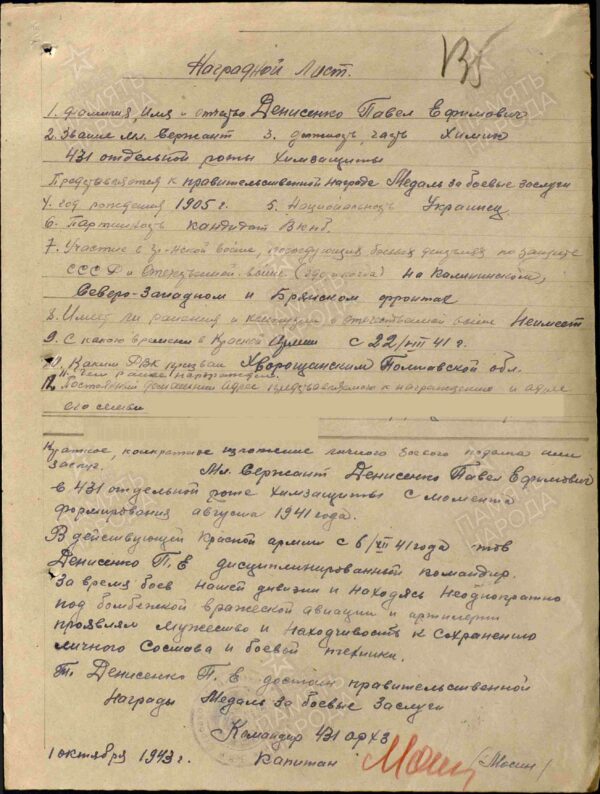 Наградной Лист.
1. Фамилия, Имя и отчество Денисенко Павел Ефимович
2. Звание мл. Сержант 3. должность, часть Химик
431 отдельной роты Химзащиты
Представляется к правительственной награде Медаль за боевые заслуги
4. год рождения 1905 г. 5. Национальность Украинец
6. Партийность кандидат Вкпб.
7. Участие в войне, последующих боевых действиях по защите
СССР и Отечественной войне (где и когда) на Калининском,
Северо-Западном и Брянском фронтах
8. Имеет ли ранения и контузии в отечественной войне Неимеет
9. С какого времени в Красной Армии с 22/VIII 41 г.
10. Каким РВК призван Хворощанским Полтавской обл.
11. Чем ранее награжден
12. Постоянный домашний адрес представляемого к награждению и адрес
его семьи
Краткое, конкретное изложение личного боевого подвига или
заслуг. Мл. Сержант Денисенко Павел Ефимович
в 431 отдельной роте Химзащиты с момента
формирования августа 1941 года.
В действующей Красной армии с 6/XII 41 года тов
Денисенко П. Е дисциплинированный командир.
За время боев нашей дивизии и находясь неоднократно
под бомбежкой вражеской авиации и артилерии
проявлял мужество и находчивость к сохранению
личного Состава и боевой техники.
Т. Денисенко П. Е достоин правительственной
Награды Медаль за боевые заслуги
Командир 431 орхз
1 октября 1943 г. Капитан (Мосин)
ПАМЯТЬ НАРОДА